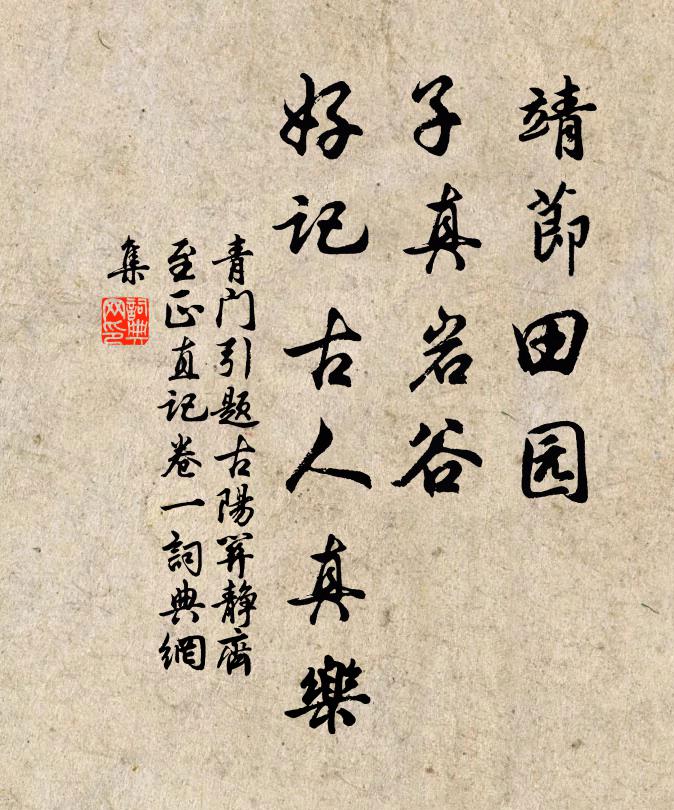 靖節田园
子真岩谷
好記古人真樂
青门引题古陽静齋
至正直記卷一詞典網
集
詞典网印